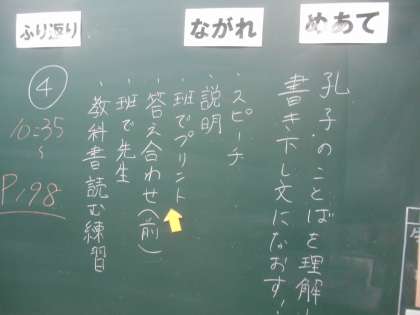 めあて
孔子のことばを理解し
書き下し文になおす!
ながれ
・スピーチ
・説明
・班でプリント
・答え合わせ(前)
・班で先生
・教科書読む練習
ふり返り
④
10:35
~
P198